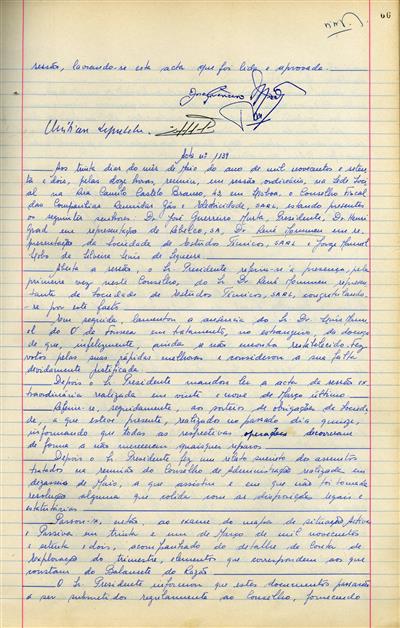 66
sessão, lavrando-se esta acta que foi lida e aprovada.
Acta nº 1139
Aos trinta dias do mês de Maio do ano de mil novecentos e seten-
ta e dois, pelas doze horas, reuniu, em sessão ordinária, na Sede Soci-
al na Rua Camilo Castelo Branco, 43 em Lisboa, o Conselho Fiscal
das Companhias Reunidas Gás e Electricidade, SARL, estando presentes
os seguintes senhores Dr. José Guerreiro Murta, Presidente, Dr. Henri
em representação de Sebelco, SA, Dr. René Hommen em re-
presentação de Sociedade de Estudos Técnicos, SARL e Jorge Manuel
de Silveira de Siqueira.
Aberta a sessão, o Sr. Presidente referiu-se à presença, pela
primeira vez neste Conselho, do Sr. Dr. René Hommen, represen-
tante de Sociedade de Estudos Técnicos, SARL, congratulando-
se por este facto.
Em seguida, lamentou a ausência do Sr. Dr. Luís Manu-
el do O' da Fonseca em tratamento, no estrangeiro, da doença
de que, infelizmente, ainda se não encontra restabelecido. Fez
votos pelas suas rápidas melhoras e considerou a sua falta
devidamente justificada.
Depois o Sr. Presidente mandou ler a acta da sessão ex-
traordinária realizada em vinte e nove de Março último.
Referiu-se, seguidamente, aos sorteios de obrigações da Socieda-
de, a que esteve presente, realizados no passado dia quinze,
informando que todas as respectivas operações decorreram
de forma a não merecerem quaisquer reparos.
Depois o Sr. Presidente fez um relato sucinto dos assuntos
tratados na reunião do Conselho de Administração realizada em
de Maio, a que assistiu e em que não foi tomada
resolução alguma que colida com as disposições legais e
estatutárias.
Passou-se, então, ao exame do mapa da situação Activa
e Passiva em trinta e um de Março de mil novecentos
e setenta e dois, acompanhado do detalhe da conta de
exploração do trimestre, elementos que correspondem aos que
constam do Balancete do Razão.
O Sr. Presidente informou que estes documentos passarão
a ser submetidos regularmente ao Conselho, fornecendo